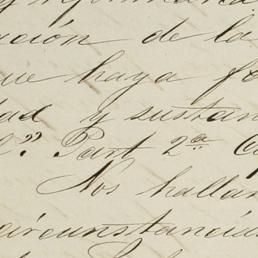 ción de la
que haya fo
dad y sustan
Part 2ª
Nos hallam
circunstancia